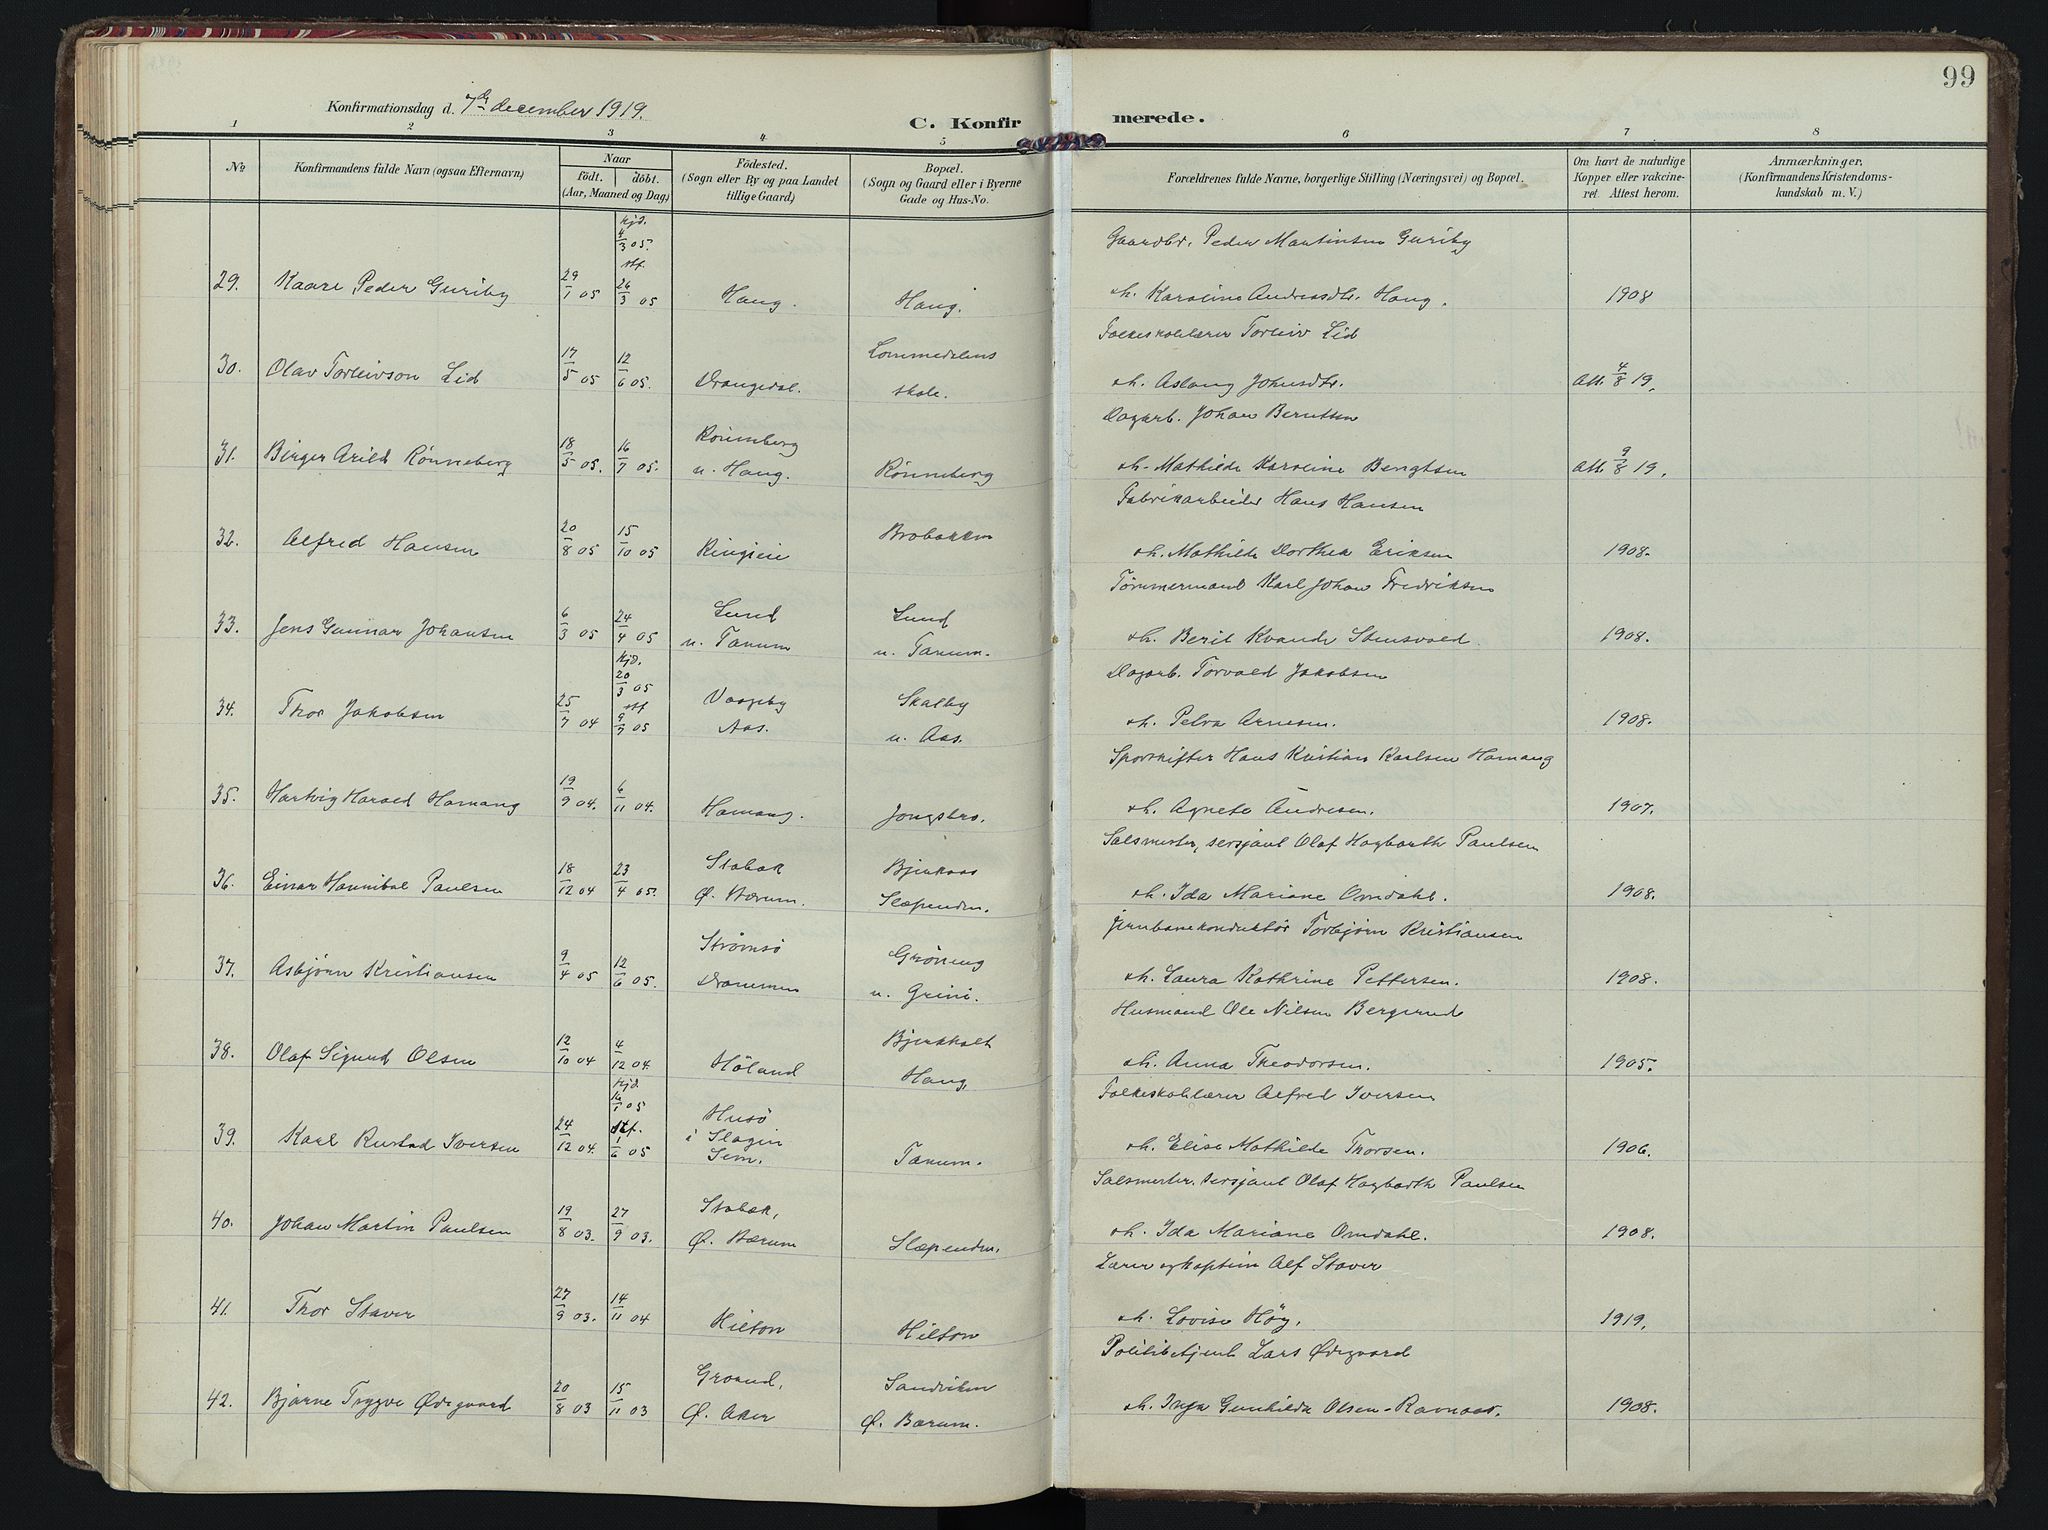 99
Konfirmationsdag d. 7de december 1919.
C. Konfirmerede.
1 2 3 4 5 6 7 8
No.
Konfirmandens fulde Navn (ogsaa Efternavn)
Naar
födt. döbt.
(Aar, Maaned og Dag)
Födested.
(Sogn eller By og paa Landet
tillige Gaard)
Bopæl.
(Sogn og Gaard eller i Byerne
Gade og Hus-No.
Forældrenes fulde Navne, borgerlige Stilling (Næringsvei) og Bopæl.
Om havt de naturlige
Kopper eller vakcine-
ret. Attest herom.
Anmærkninger.
(Konfirmandens Kristendoms-
kundskab m. V.)
hjd. 4/3 05. stf.
Gaardbr. Peder Martinsen Guriby
29. Kaare Peder Guriby 29/1 05 26/3 05 Haug. Haug. o.h. Karoline Andreasdtr. Haug. 1908
Folkeskolelærer Torleiv Lid
30. Olav Torleivson Lid 17/5 05 12/6 05. Drangedal. Lommedalens skole. o.h. Aslaug Johnsdtr. Att. 4/8 19.
Dagarb. Johan Berntsen
31. Birger Arild Rønneberg 18/5 05. 16/7 05. Rønneberg u. Haug. Rønneberg o.h. Mathilde Karoline Bengtsen Att. 9/8 19.
Fabrikarbeider Hans Hansen
32. Alfred Hansen 20/8 05 15/10 05 Ringieie Brobakken o.h. Mathilde Dorthea Eriksen 1908.
Tømmermand Karl Johan Fredriksen
33. Jens Gunnar Johansen 6/3 05 24/4 05 Lund u. Tanum Lund u. Tanum. o.h. Berit Kvande Stensvold. 1908.
hjd. 20/3 05 stf
Dagarb. Torvald Jakobsen
34. Thor Jakobsen 25/7 04 9/7 05 Aas. Skalby u. Aas. o.h. Petra Arnesen. 1908.
Sporskifter Hans Kristian Karlsen Hamang
35. Hartvig Harald Hamang 19/9 04. 6/11 04. Hamang. Jongsbro. o.h. Agnete Andresen. 1907.
Salmester, sersjant Olaf Hagbarth Paulsen
36. Einar Hannibal Paulsen 18/12 04 23/4 05. Stabæk Ø. Bærum. Bjerkaas Slæpenden. o.h. Ida Mariane Omdahl. 1908.
Jernbanekonduktør Torbjørn Kristiansen
37. Asbjørn Kristiansen 9/4 05 12/6 05. Strømsö Drammen Grøneng u. Grini. o.h. Laura Kathrine Pettersen. 1908.
Husmand Ole Nilsen Bergerud
38. Olaf Sigurd Olsen 12/10 04 4/12 04 Höland Bjerkholt Haug. o.h. Anna Theodorsen. 1905.
hjd. 16/1 05 stf.
Folkeskolelærer Alfred Iversen
39. Karl Rustad Iversen 24/12 04. 1/6 05 Husö i Slagen Sem. Tanum. o.h. Elise Mathilde Thorsen. 1906.
Salmester. sersjant Olaf Hagbarth Paulsen
40. Johan Martin Paulsen 19/8 03. 27/9 03. Stabæk, Ø. Bærum Slæpenden. o.h. Ida Mariane Omdahl. 1908.
Lærer og kaptein Alf Staver
41. Thor Staver 27/9 03. 14/11 04 Hilton Hilton o.h. Lovise Høy. 1919.
Politibetjent Lars Ødegaard
42. Bjarne Trygve Ødegaard 20/8 03 15/11 03 Grorud, Ø. Aker Sandviken Ø. Bærum. o.h. Inga Gunhilda Olsen-Ramaas. 1908.